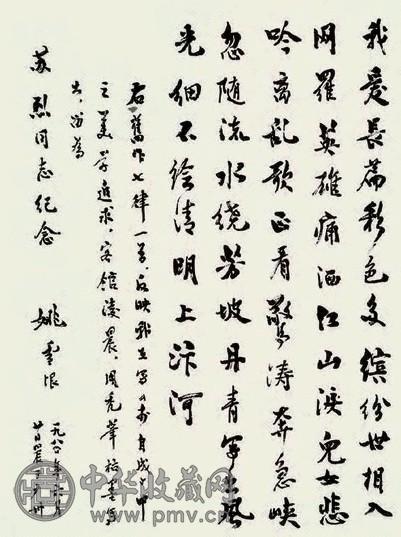 我爱长篇彩色多缤纷世相入
网罗英雄痛洒江山泪儿女悲
吟离乱歌正看惊涛奔急峡
忽随流水绕芳坡丹青风
光细不绘清明上汴河
右旧作七律一首，反映我在写《李自成》中
之美学追求。客馆凌晨，用秃笔枯墨写
出，留为
苏烈同志纪念
姚雪垠
一九八〇年
廿日晨
中华收藏网
www.pmv.cn